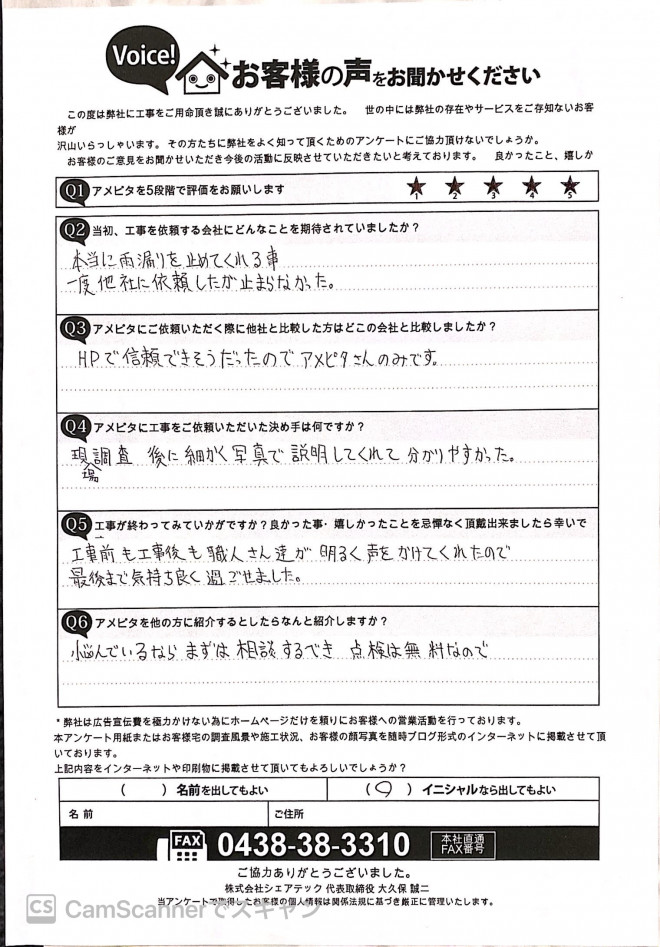 Voice!
お客様の声をお聞かせください
この度は弊社に工事をご用命頂き誠にありがとうございました。 世の中には弊社の存在やサービスをご存知ないお客
様が
沢山いらっしゃいます。その方たちに弊社をよく知って頂くためのアンケートにご協力頂けないでしょうか。
お客様のご意見をお聞かせいただき今後の活動に反映させていただきたいと考えております。 良かったこと、嬉しか
Q1 アメピタを5段階で評価をお願いします ★ ★ ★ ★ ★
1 2 3 4 5
Q2 当初、工事を依頼する会社にどんなことを期待されていましたか?
本当に雨漏りを止めてくれる事
一度他社に依頼したが止まらなかった。
Q3 アメピタにご依頼いただく際に他社と比較した方はどこの会社と比較しましたか?
HPで信頼できそうだったのでアメピタさんのみです。
Q4 アメピタに工事をご依頼いただいた決め手は何ですか?
現調査 後に細かく写真で説明してくれて分かりやすかった。
場
Q5 工事が終わってみていかがですか?良かった事・嬉しかったことを忌憚なく頂戴出来ましたら幸いで
工事前も工事後も職人さん達が明るく声をかけてくれたので
最後まで気持ち良く過ごせました。
Q6 アメピタを他の方に紹介するとしたらなんと紹介しますか?
悩んでいるならまずは相談するべき 点検は無料なので
* 弊社は広告宣伝費を極力かけない為にホームページだけを頼りにお客様への営業活動を行っております。
本アンケート用紙またはお客様宅の調査風景や施工状況、お客様の顔写真を随時ブログ形式のインターネットに掲載させて頂
いております。
上記内容をインターネットや印刷物に掲載させて頂いてもよろしいでしょうか?
( ) 名前を出してもよい (○) イニシャルなら出してもよい
名前 ご住所
FAX 0438-38-3310 本社直通
FAX番号
ご協力ありがとうございました。
株式会社シェアテック 代表取締役 大久保 誠二
当アンケートで取得したお客様の個人情報は関係法規に基づき厳正に管理いたします。
CS CamScannerでスキャン